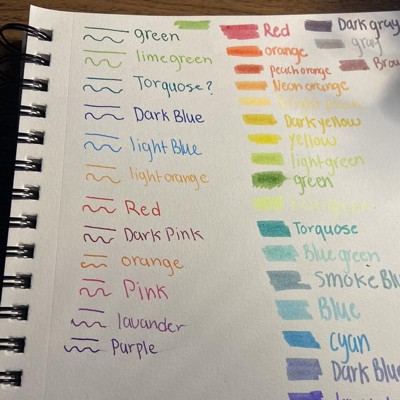 green
limegreen
Torquose?
Dark Blue
light Blue
light orange
Red
Dark Pink
orange
Pink
lavander
Purple
Red
orange
Peach orange
Neon orange
Dark yellow
yellow
light green
green
Torquose
Blue green
Smoke
Blue
cyan
Dark Blue
Dark gray
gray